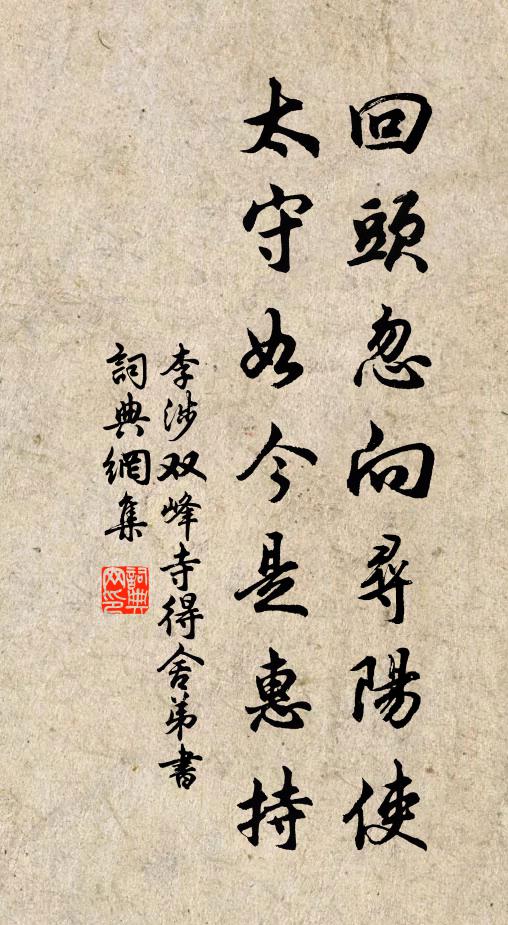 回頭忽向尋陽使
太守如今是惠持
李涉双峰寺得舍弟書
詞典網集
詞典网印